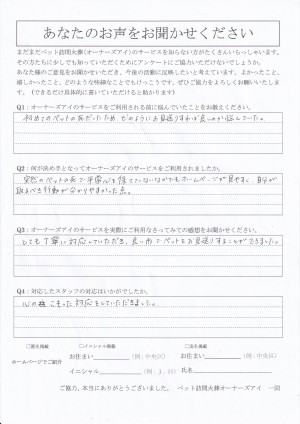 あなたのお声をお聞かせください
まだまだペット訪問火葬(オーナーズアイ)のサービスを知らない方がたくさんいらっしゃいます。
その方たちに少しでも知っていただくためにアンケートにご協力いただけないでしょうか。
あなた様のご意見をお聞かせいただき、今後の活動に反映したいと考えています。よかったこと、
嬉しかったこと、どのような些細なことでもけっこうです。ぜひご協力をよろしくお願いいたします。
(できるだけ具体的に書いていただけると助かります)
Q1：オーナーズアイのサービスをご利用される前に悩んでいたことをお教えください。
初めてのペットの死だったため、どのようにお見送りすれば良いのか悩んでいた。
Q2：何が決め手となってオーナーズアイのサービスをご利用されましたか。
突然のペットの死で平常心を保てていないなかでもホームページが見やすく、自分が
取るべき行動が分かりやすかった点。
Q3：オーナーズアイのサービスを実際にご利用になさってみての感想をお聞かせください。
とても丁寧に対応していただき、良い形でペットをお見送りすることができました。
Q4：対応したスタッフの対応はいかがでしたか。
心のこもった対応をしていただきました。
□匿名掲載 □イニシャル掲載 □実名掲載
ホームページでご紹介 お住まい (例：中央区) お住まい (例：中央区)
イニシャル (例：J.H) 氏名
ご協力、本当にありがとうございました。 ペット訪問火葬オーナーズアイ 一同